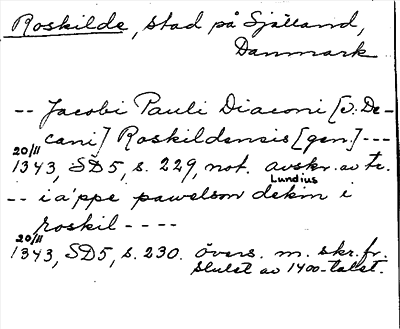 Roskilde, stad på Själland,
Danmark
-- Jacobi Pauli Diaconi [ɔ: De-
cani] Roskildensis [gen.] ---
20/11
1343, SD5, s. 229, not. avskr. av
Lundius
-- iäppe pawelson dekin i
roskil ----
20/11
1343, SD5, s. 230. övers. m. skr. fr.
slutet av 1400-talet.